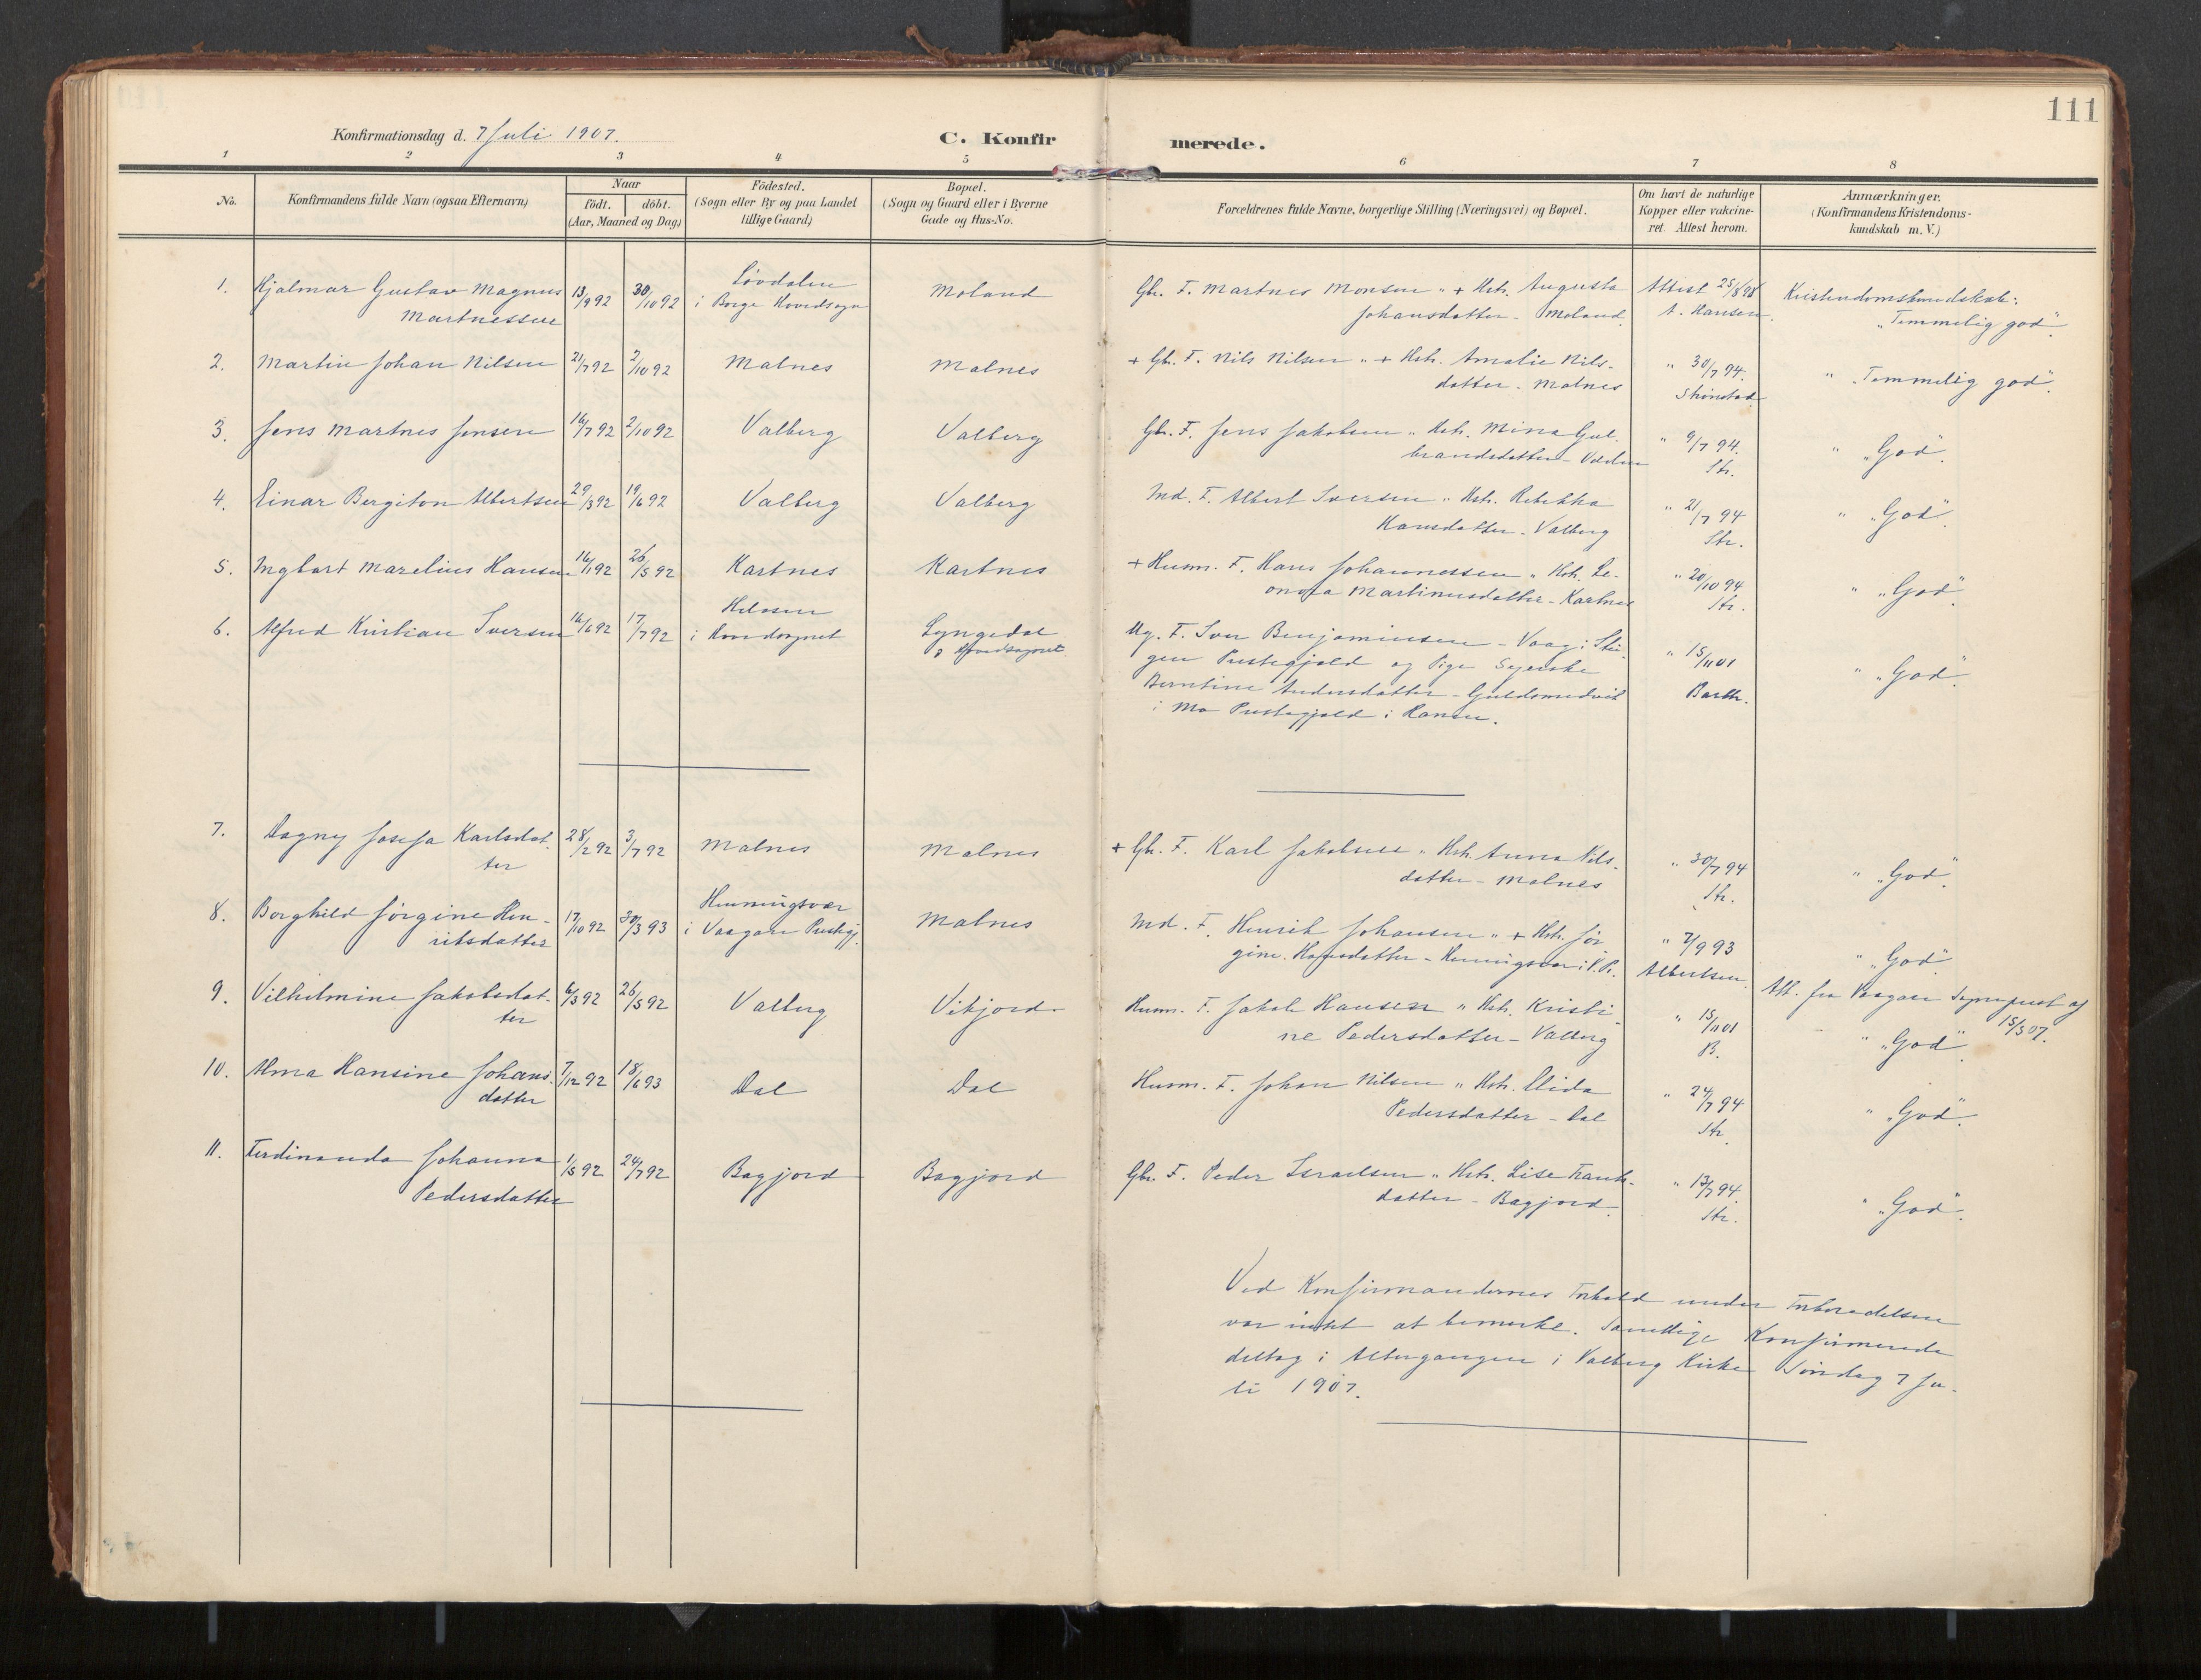 111
Konfirmationsdag d. 7 Juli 1907.
C. Konfirmerede.
1 2 3 4 5 6 7 8
No.
Konfirmandens fulde Navn (ogsaa Efternavn)
Naar
födt. döbt.
(Aar, Maaned og Dag)
Födested.
(Sogn eller By og paa Landet
tillige Gaard)
Bopæl.
(Sogn og Gaard eller i Byerne
Gade og Hus-No.
Forældrenes fulde Navne, borgerlige Stilling (Næringsvei) og Bopæl.
Om havt de naturlige
Kopper eller vakcine-
ret. Attest herom.
Anmærkninger.
(Konfirmandens Kristendoms-
kundskab m. V.)
1. Hjalmar Gustav Magnus
Martnessen
13/9 92 30/10 92
Løvdalen
i Borge Hovedsogn
Moland
Gbr. F. Martnes Monsen " + Hstr. Augusta
Johansdatter - Moland.
Attest 25/8 98
A. Hansen.
Kristendomskundskab:
"Temmelig god".
2. Martin Johan Nilsen 21/7 92 2/10 92 Malnes Malnes
+ Gbr. F. Nils Nilsen " + Hstr. Amalie Nils-
datter - Malnes
" 30/7 94.
" "Temmelig god".
3. Jens Martnes Jensen 16/7 92 2/10 92 Valberg Valberg
Gbr. F. Jens Jakobsen " Hstr. Mina Gul-
brandsdatter -
" 9/7 94.
Str.
" "God".
4. Einar Bergiton Albertsen 29/3 92 19/6 92 Valberg Valberg
Ind. F. Albert Iversen " Hstr. Rebekka
Hansdatter - Valberg
" 21/7 94
Str.
" "God".
5. Ingbart Marelius Hansen 16/1 92 26/5 92 Kartnes Kartnes
+ Husm. F. Hans Johannessen " Hstr. Le-
onora Martinusdatter - Kartnes
" 20/10 94
Str.
" "God".
6. Alfred Kristian Iversen 16/6 92 17/7 92
i Hovedsognet
Lyngedal
i Hovedsognet.
Ug. F. Iver Benjaminsen - Vaag i Stei-
gen Prestegjeld og Pige
Berntine Andersdatter - Guldsmedvik
i Mo Prestegjeld i Ranen.
" 15/11 01
Barth.
" "God".
7. Dagny Josefa Karlsdat-
ter
28/2 92 3/7 92 Malnes Malnes
+ Gbr. F. Karl Jakobsen " Hstr. Anna Nils-
datter - Malnes
" 30/7 94
Str.
" "God".
8. Borghild Jørgine Hen-
riksdatter
17/10 92 30/3 93
Henningsvær
i Vaagan Prestegj.
Malnes
Ind. F. Henrik Johansen " + Hstr. Jør
gine Hansdatter - Henningsvær i V. P.
" 7/9 93
Albertsen.
" "God".
Att. fra Vaagan Sogneprest af
15/5 07.
9. Vilhelmine Jakobsdat-
ter
6/3 92 26/5 92 Valberg Vikjord
Husm. F. Jakob Hansen " Hstr. Kristi
ne Pedersdatter - Valberg
" 15/11 01
B.
" "God".
10. Alma Hansine Johans-
datter
7/12 92 18/6 93 Dal Dal
Husm. F. Johan Nilsen " Hstr. Elida
Pedersdatter - Dal
" 24/7 94
Str.
" "God".
11. Ferdinanda Johanna
Pedersdatter
1/5 92 24/7 92 Bagjord Bagjord
Gbr. F. Peder Israelsen " Hstr. Lise Frants-
datter - Bagjord.
" 13/7 94.
Str.
" "God".
Ved Konfirmandernes Forhold under Forberedelsen
var intet at bemerke. Samtlige Konfirmerede
deltog i Altergangen i Valberg Kirke Søndag 7 Ju-
li 1907.